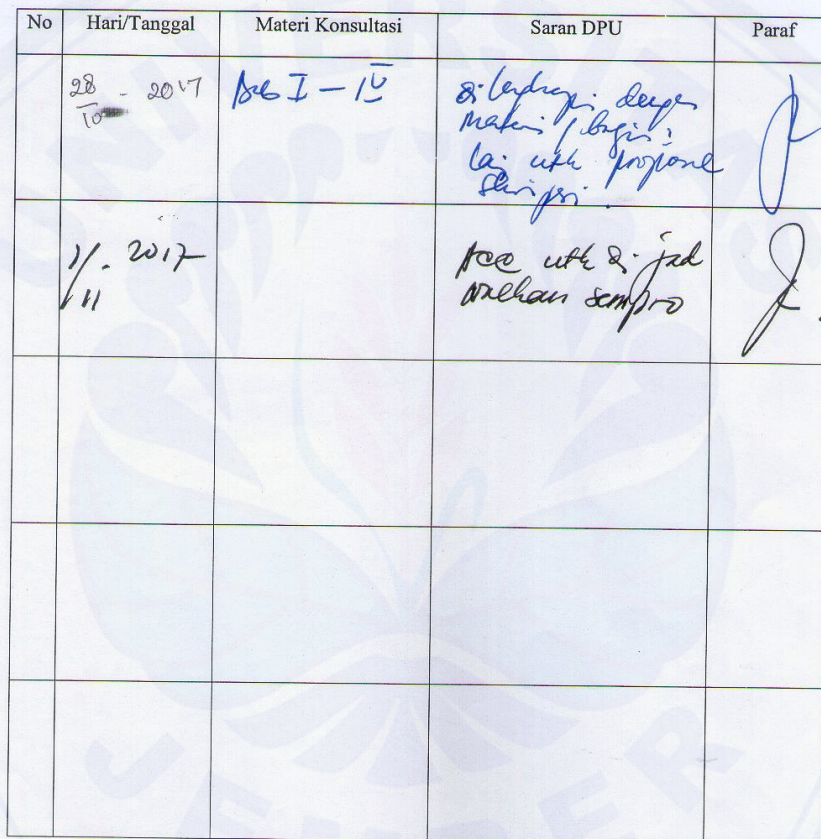 No Hari/Tanggal Materi Konsultasi Saran DPU Paraf
28/10 - 2017 Bab I – IV dilengkapi dengan
materi / bagian
lain utk proposal
skripsi.
1/11 - 2017 Acc utk di jad
walkan sempro
UNIVERSITAS
JEMBER